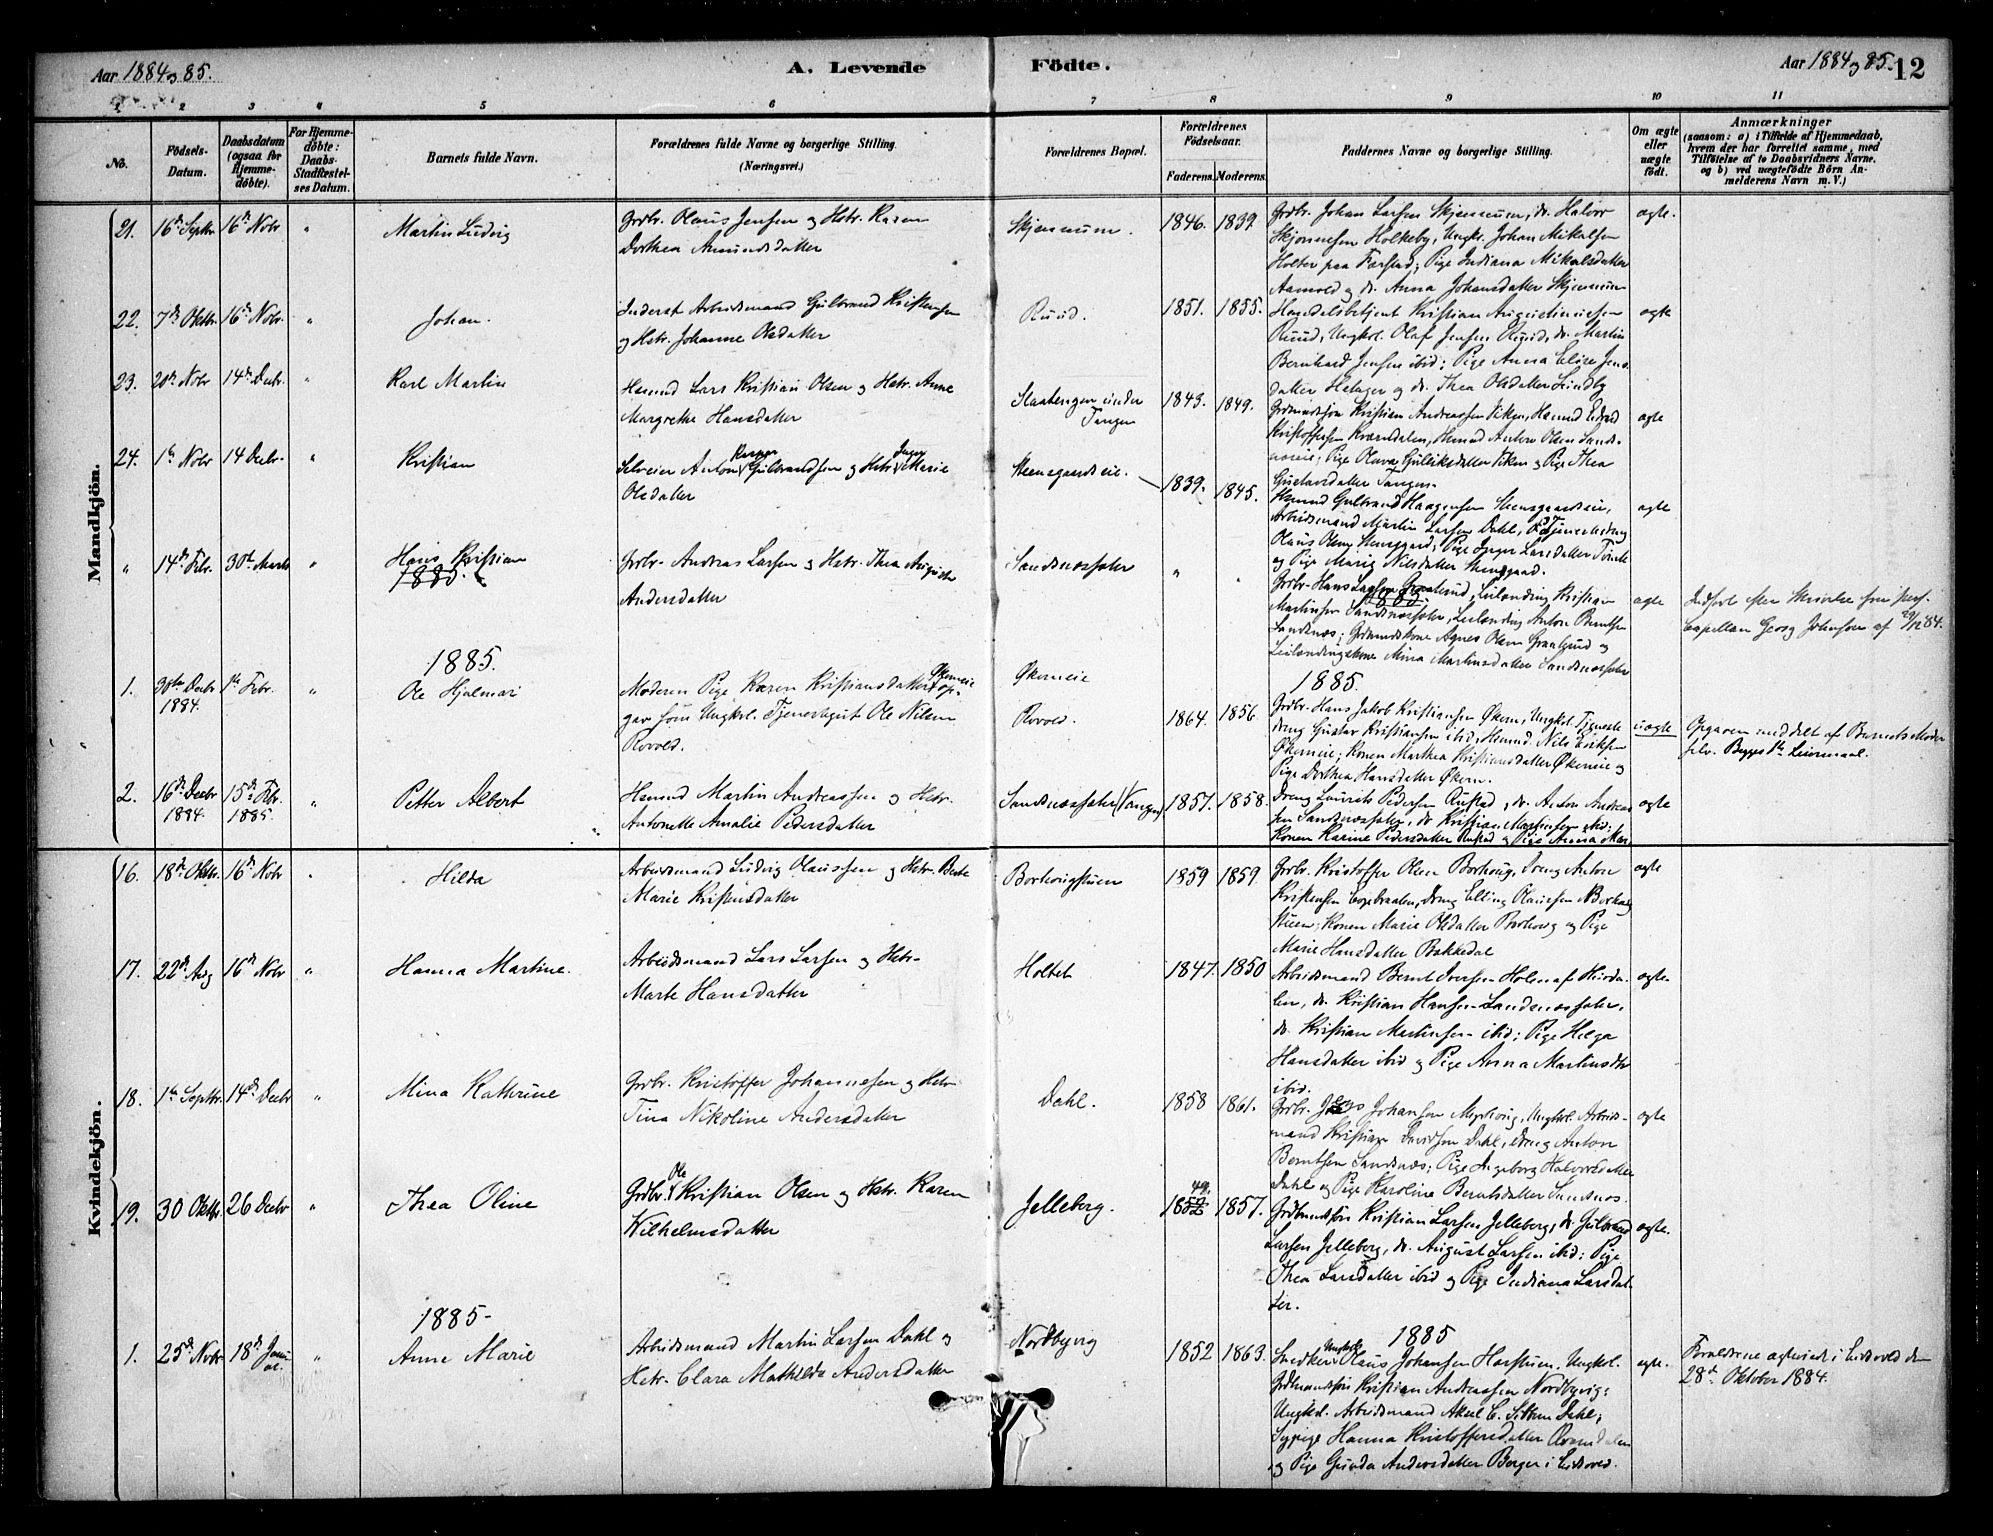 Aar 1884 og 85.
A. Levende
Födte.
Aar 1884 og 85.
12
1 2 3 4 5 6 7 8 9 10 11
No.
Födsels-
Datum.
Daabsdatum
(ogsaa for
Hjemme-
döbte).
For Hjemme-
döbte:
Daabs-
Stadfæstel-
ses Datum.
Barnets fulde Navn.
Forældrenes fulde Navne og borgerlige Stilling.
(Næringsvei.)
Forældrenes Bopæl.
Forældrenes
Födselsaar.
Faderens. Moderens.
Faddernes Navne og borgerlige Stilling.
Om ægte
eller
uægte
födt.
Anmærkninger
(saasom: a) i Tilfælde af Hjemmedaab,
hvem der har forrettet samme, med
Tilföielse af to Daabsvidners Navne,
og b) ved uægtefödte Börn An-
melderens Navn m. V.)
Mandkjön.
21. 16de Septbr 16de Novbr " Martin Ludvig
Grdbr. Olaus Jensen og Hstr. Karen
Dorthea Amundsdatter
Skjennum. 1846. 1839.
Grdbr. Johan Larsen Skjennum, do. Halvor
Holkeby, Ungkr. Johan Mikalsen
Holter paa Farstad; Pige Indiana Mikalsdatter
Aamold og do. Anna Johansdatter Skjennum
ægte.
22. 7de Oktbr. 16de Nobr. " Johan.
Inderst Arbeidsmand Gulbrand Kristensen
og Hstr. Johanne Olsdatter
Ruud. 1851. 1855.
Handelsbetjent Kristian Augustinussen
Ruud, Ungkrl. Olaf Jensen Ruud, do. Martin
Bernhard Jensen ibid; Pige Anna Elise Jens-
datter Helager og do. Thea Olsdatter Lindby
ægte
23. 20de Nobr 14de Decbr. " Karl Martin
Hsmnd Lars Kristian Olsen og Hstr. Anne
Margrethe Hansdatter
Slaatengen under
Tangen
1843. 1849.
Grdmndssön Kristian Andreassen Viken, Hsmnd
Kristoffersen Kværndalen, Hsmnd Anton Olsen Sands-
næseie; Pige Olava Gulliksdatter Viken og Pige Thea
Gustavsdatter Tangen.
ægte
24. 1ste Nobr 14 Decbr. " Kristian
Selveier Anton Kasper Gulbrandsen og Hstr. Inger Marie
Olsdatter
Stensgaardseie. 1839. 1845.
Hsmnd Gulbrand Haagensen Stensgaardseie,
Arbeidsmand Martin Larsen Dahl, Tjenestedreng
Olaus Olsen Stensgaard; Pige Inger Larsdatter
og Pige Marie Nilsdatter Stensgaard.
ægte
" 14de Febr. 30te Marts " Hans Kristian
1885.
Grdbr. Andreas Larsen og Hstr. Thea Auguste
Andersdatter
Sandsnæssæter " "
Grdbr. Hans Larsen Leilænding Kristian
Martinsen Sandsnæssæter, Leilænding Anton Berntsen
Sandsnæs; Grdmndskone Agnes Olsen og
Leilændingskone Mina Martinsdatter Sandsnæssæter
ægte
Indfört efter Skrivelse fra pers.
Capellan Georg Johnsen af 29/12 84.
1885.
1885.
1. 30te Decbr 1884. 1ste Febr. " Ole Hjalmar
Moderen Pige Karen Kristiansdatter Økerneie op-
gav som Ungkrl. Tjenestegut Ole Nilsen
Rovold.
Økerneie
Rovold. 1864. 1856.
Grdbr. Hans Jakob Kristiansen Økern, Ungkrl. Tjeneste-
dreng Gustav Kristiansen ibid, Hsmnd. Nils Eriksen
Økerneie; Konen Marthea Kristiansdatter Økerneie og
Pige Dorthea Hansdatter Økern.
uægte
Opgaven meddelt af Barnets Moder
selv. Begges 1ste Leiermaal.
2. 16de Decbr 1884. 15de Febr. 1885. " Petter Albert
Hsmnd Martin Andreassen og Hstr.
Antonette Amalie Pedersdatter
Sandsnæssæter (Vangen) 1857. 1858.
Dreng Laurits Pedersen Rustad, do. Anton Andreas-
sen Sandsnæssæter, do. Kristian Martinsen ibid;
Konen Karine Pedersdatter Rustad og Pige Anna
ægte
Kvindekjön.
16. 18de Oktbr. 16de Nobr " Hilda
Arbeidsmand Ludvig Olaussen og Hstr. Berte
Marie Kristensdatter
Borhougstuen 1859 1859.
Grdbr. Kristoffer Olsen Borhoug, Dreng Anton
Kristensen, Dreng Elling Olaussen Borhoug-
stuen; Konen Marie Olsdatter Borhoug og Pige
Marie Hansdatter Bakkedal
ægte
17. 22de Aug 16de Nobr " Hanna Martine.
Arbeidsmand Lars Larsen og Hstr.
Marte Hansdatter
Holtet 1847. 1850
Arbeidsmand Bernt Iversen Holen af Hurda-
len, do. Kristian Hansen Sandsnæssæter,
do. Kristian Martinsen ibid; Pige Helga
Hansdatter ibid og Pige Anna Martinsdtr
ibid.
ægte
18. 1ste Septbr. 14de Decbr " Mina Kathrine
Grdbr. Kristoffer Johannesen og Hstr.
Tina Nikoline Andersdatter
Dahl. 1858 1861.
Grdbr. Johansen, Ungkrl. Arbeids-
mand Kristian Davidsen Dahl, Dreng Anton
Berntsen Sandsnæs; Pige Ingeborg Halvorsdatter
Dahl og Pige Karoline Berntsdatter Sandsnæs.
ægte
19. 30 Oktbr. 26 Decbr " Thea Oline
Grdbr. Ole Kristian Olsen og Hstr. Karen
Wilhelmsdatter
Jelleberg. 1852 49. 1857.
Grdmndssön Kristian Larsen Jelleberg, do. Gulbrand
Larsen Jelleberg, do. August Larsen ibid; Pige
Thea Larsdatter ibid og Pige Indiana Larsdat-
ter.
ægte.
1885-
1885
1. 25de Nvbr 18de Janu- " Anne Marie
Arbeidsmand Martin Larsen Dahl og
Hstr. Clara Mathilda Andersdatter
Nordbyvig 1852 1863.
Snedker Ungkrl. Olaus Johansen Harstuen. Ungkrl.
Grdmandssön Kristian Andreassen Nordbyvig;
Ungkrl. Arbeidsmand Aksel C. Dahl;
Sypige Hanna Kristoffersdatter Kværndalen
og Pige Gunda Andersdatter Berger i Eidsvold.
ægte.
Forældrene ægteviede i Eidsvold den
28de Oktober 1884.